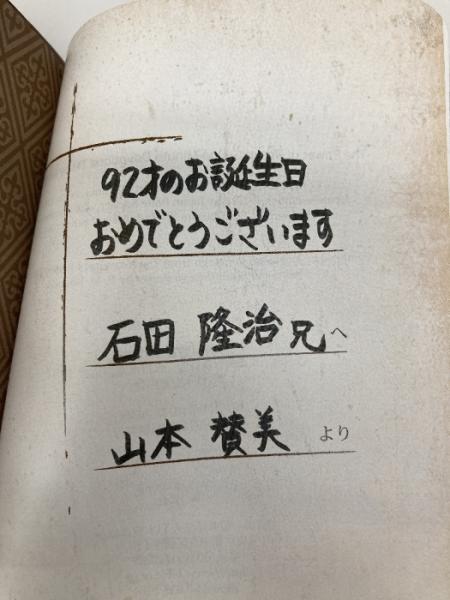 92才のお誕生日
おめでとうございます
石田 隆治兄へ
山本 賛美 より